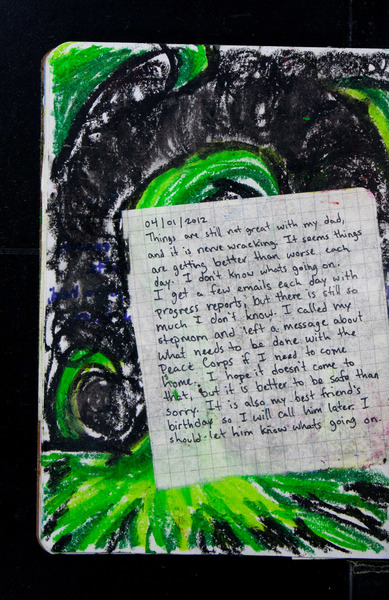 04/01/2012
Things are still not great with my dad,
and it is nerve wracking. It seems things
are getting better than worse each
day. I don't know whats going on.
I get a few emails each day with
progress reports, but there is still so
much I don't know. I called my
stepmom and left a message about
what needs to be done with the
Peace Corps if I need to come
home. I hope it doesn't come to
that, but it is better to be safe than
sorry. It is also my best friend's
birthday so I will call him later. I
should let him know whats going on.